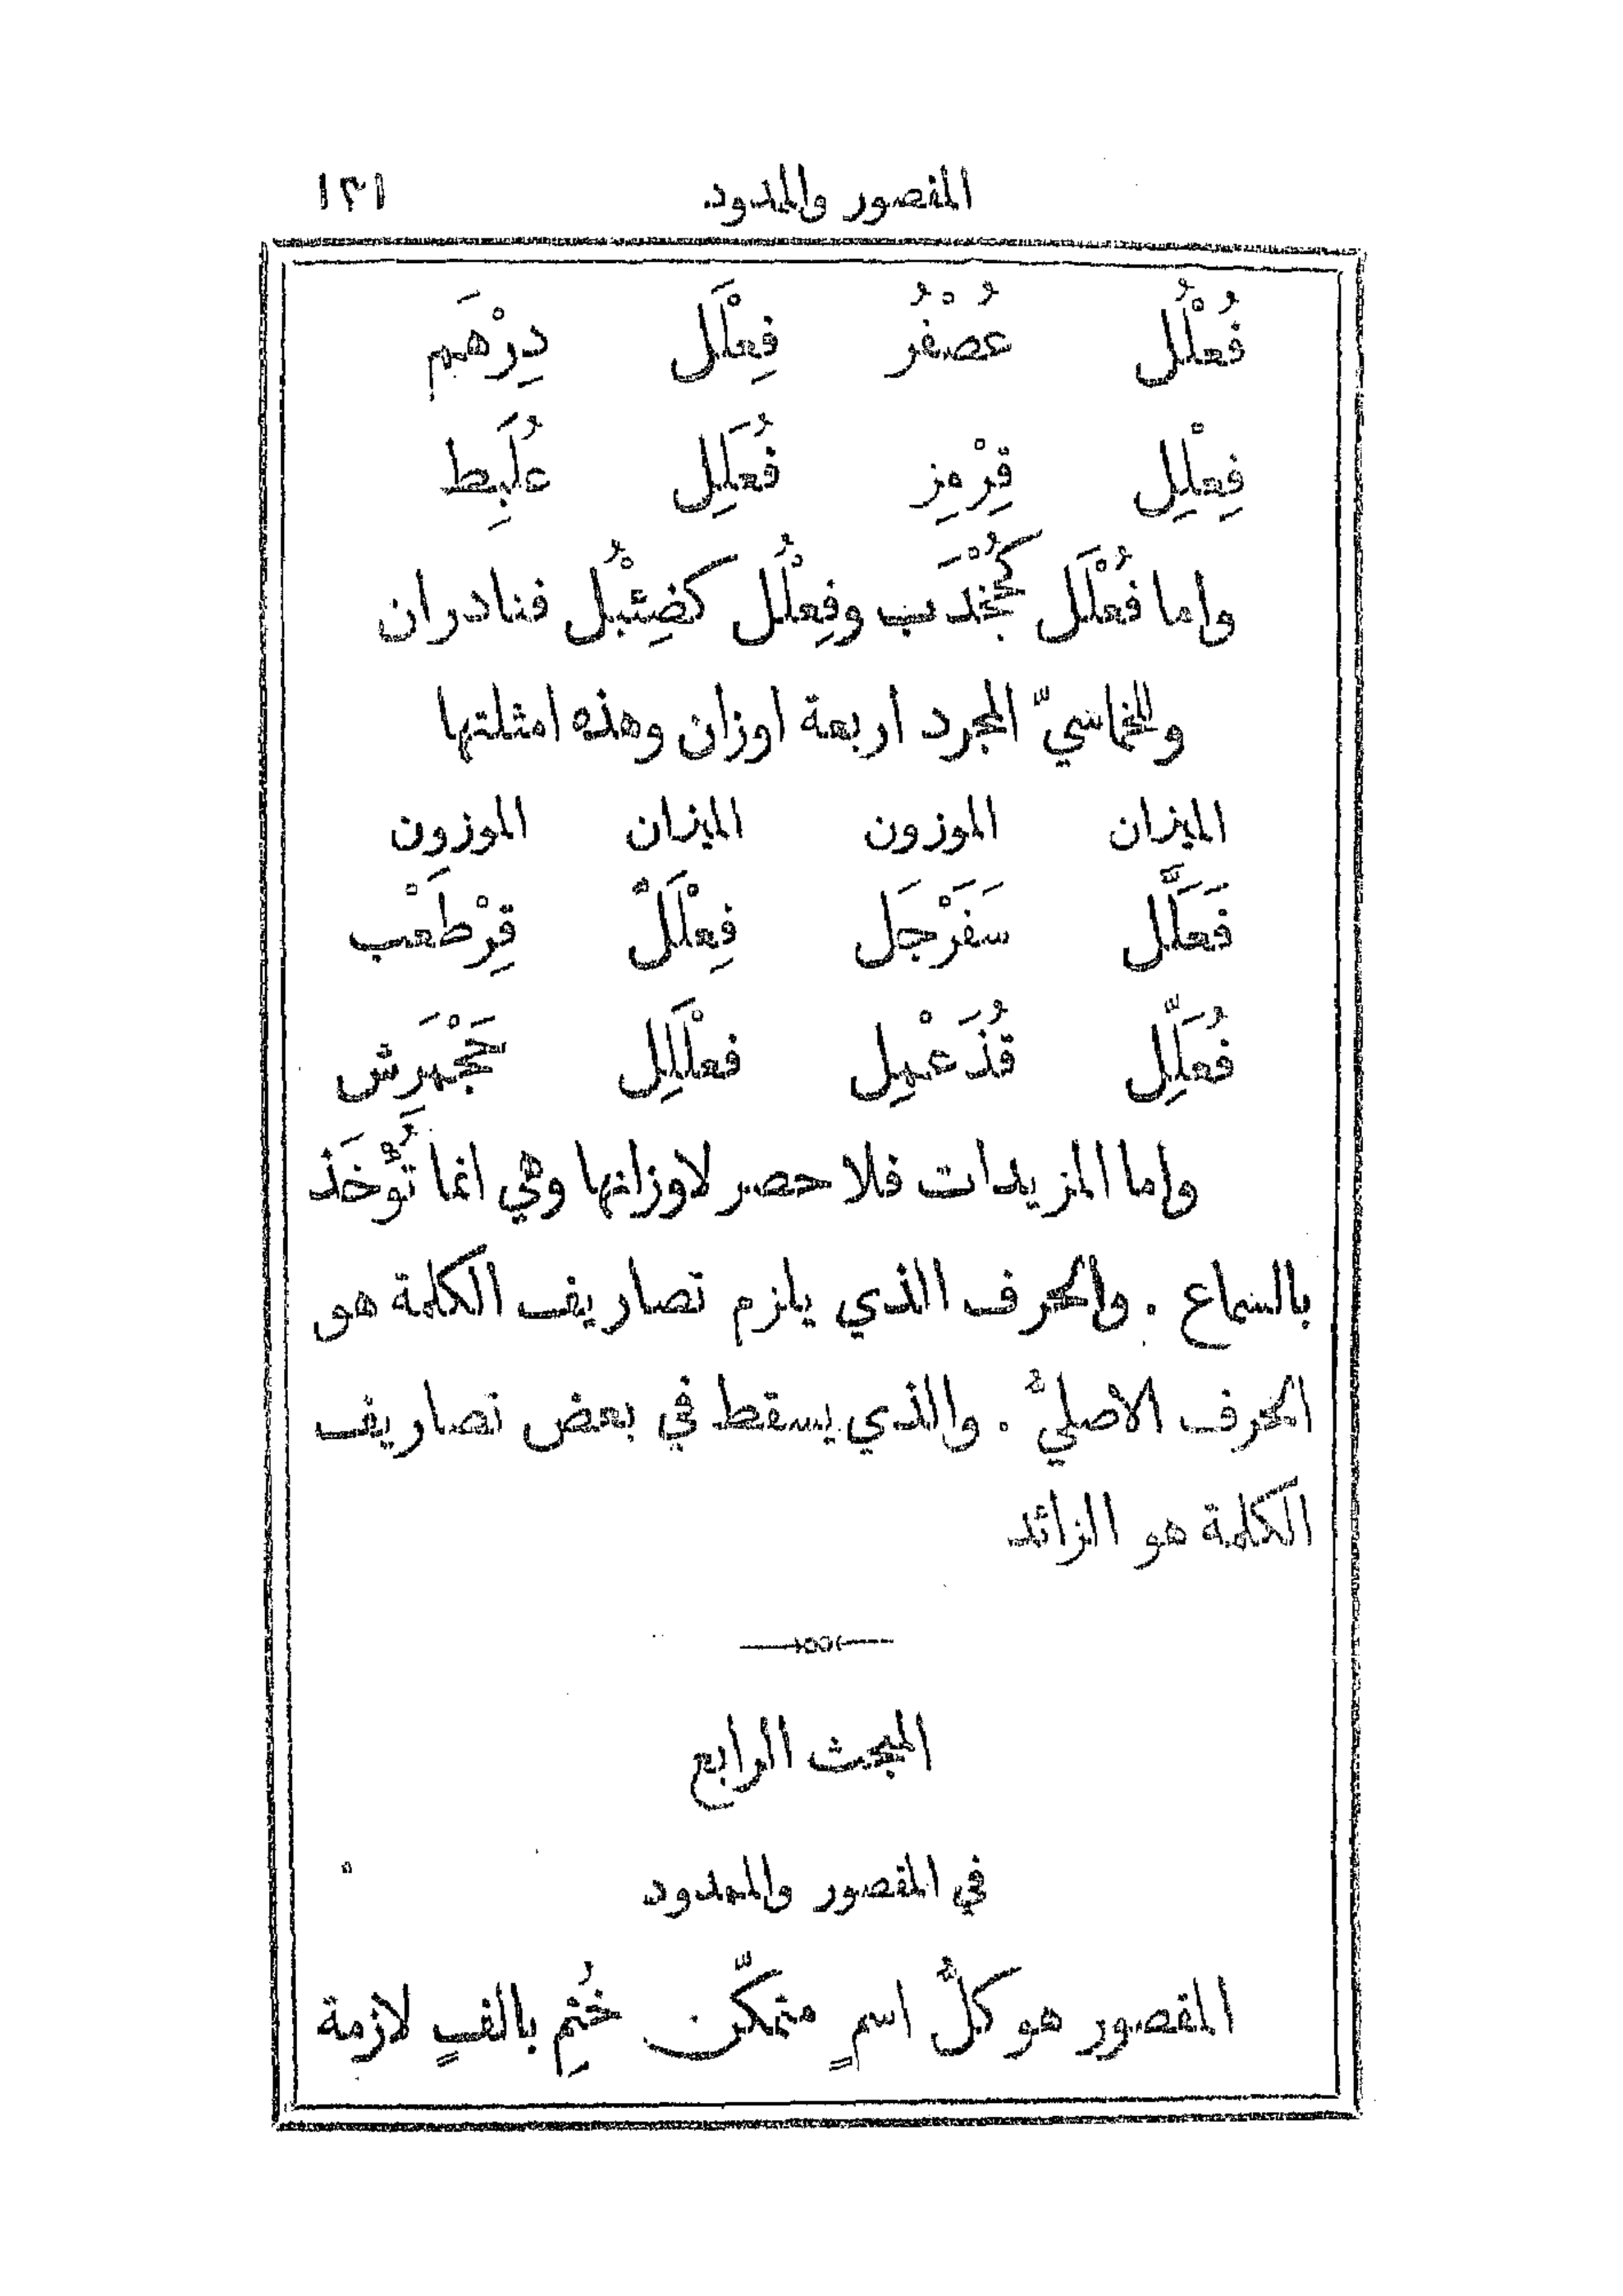 المقصور والممدود ١٢١
فُعْلُل عُصْفُر فِعْلَل دِرْهَم
فِعْلِل قِرْمِز فُعَلِل عُلَبِط
واما فُعْلَل كجُخْدَب وفِعْلُل كضِئْبُل فنادران
وللخماسيّ المجرد اربعة اوزان وهذه امثلتها
الميزان الموزون الميزان الموزون
فَعَلَّل سَفَرْجَل فِعْلَلّ قِرْطَعْب
فُعَلِّل قُذَعْمِل فعْلَلِل جَحْمَرِش
واما المزيدات فلا حصر لاوزانها وهي انما تُؤْخَذ
بالسماع . والحرف الذي يلزم تصاريف الكلمة هو
الحرف الاصليُّ . والذي يسقط في بعض تصاريف
الكلمة هو الزائد
المبحث الرابع
في المقصور والممدود
المقصور هو كلُّ اسمٍ متمكّن خُتِم بالفٍ لازمة